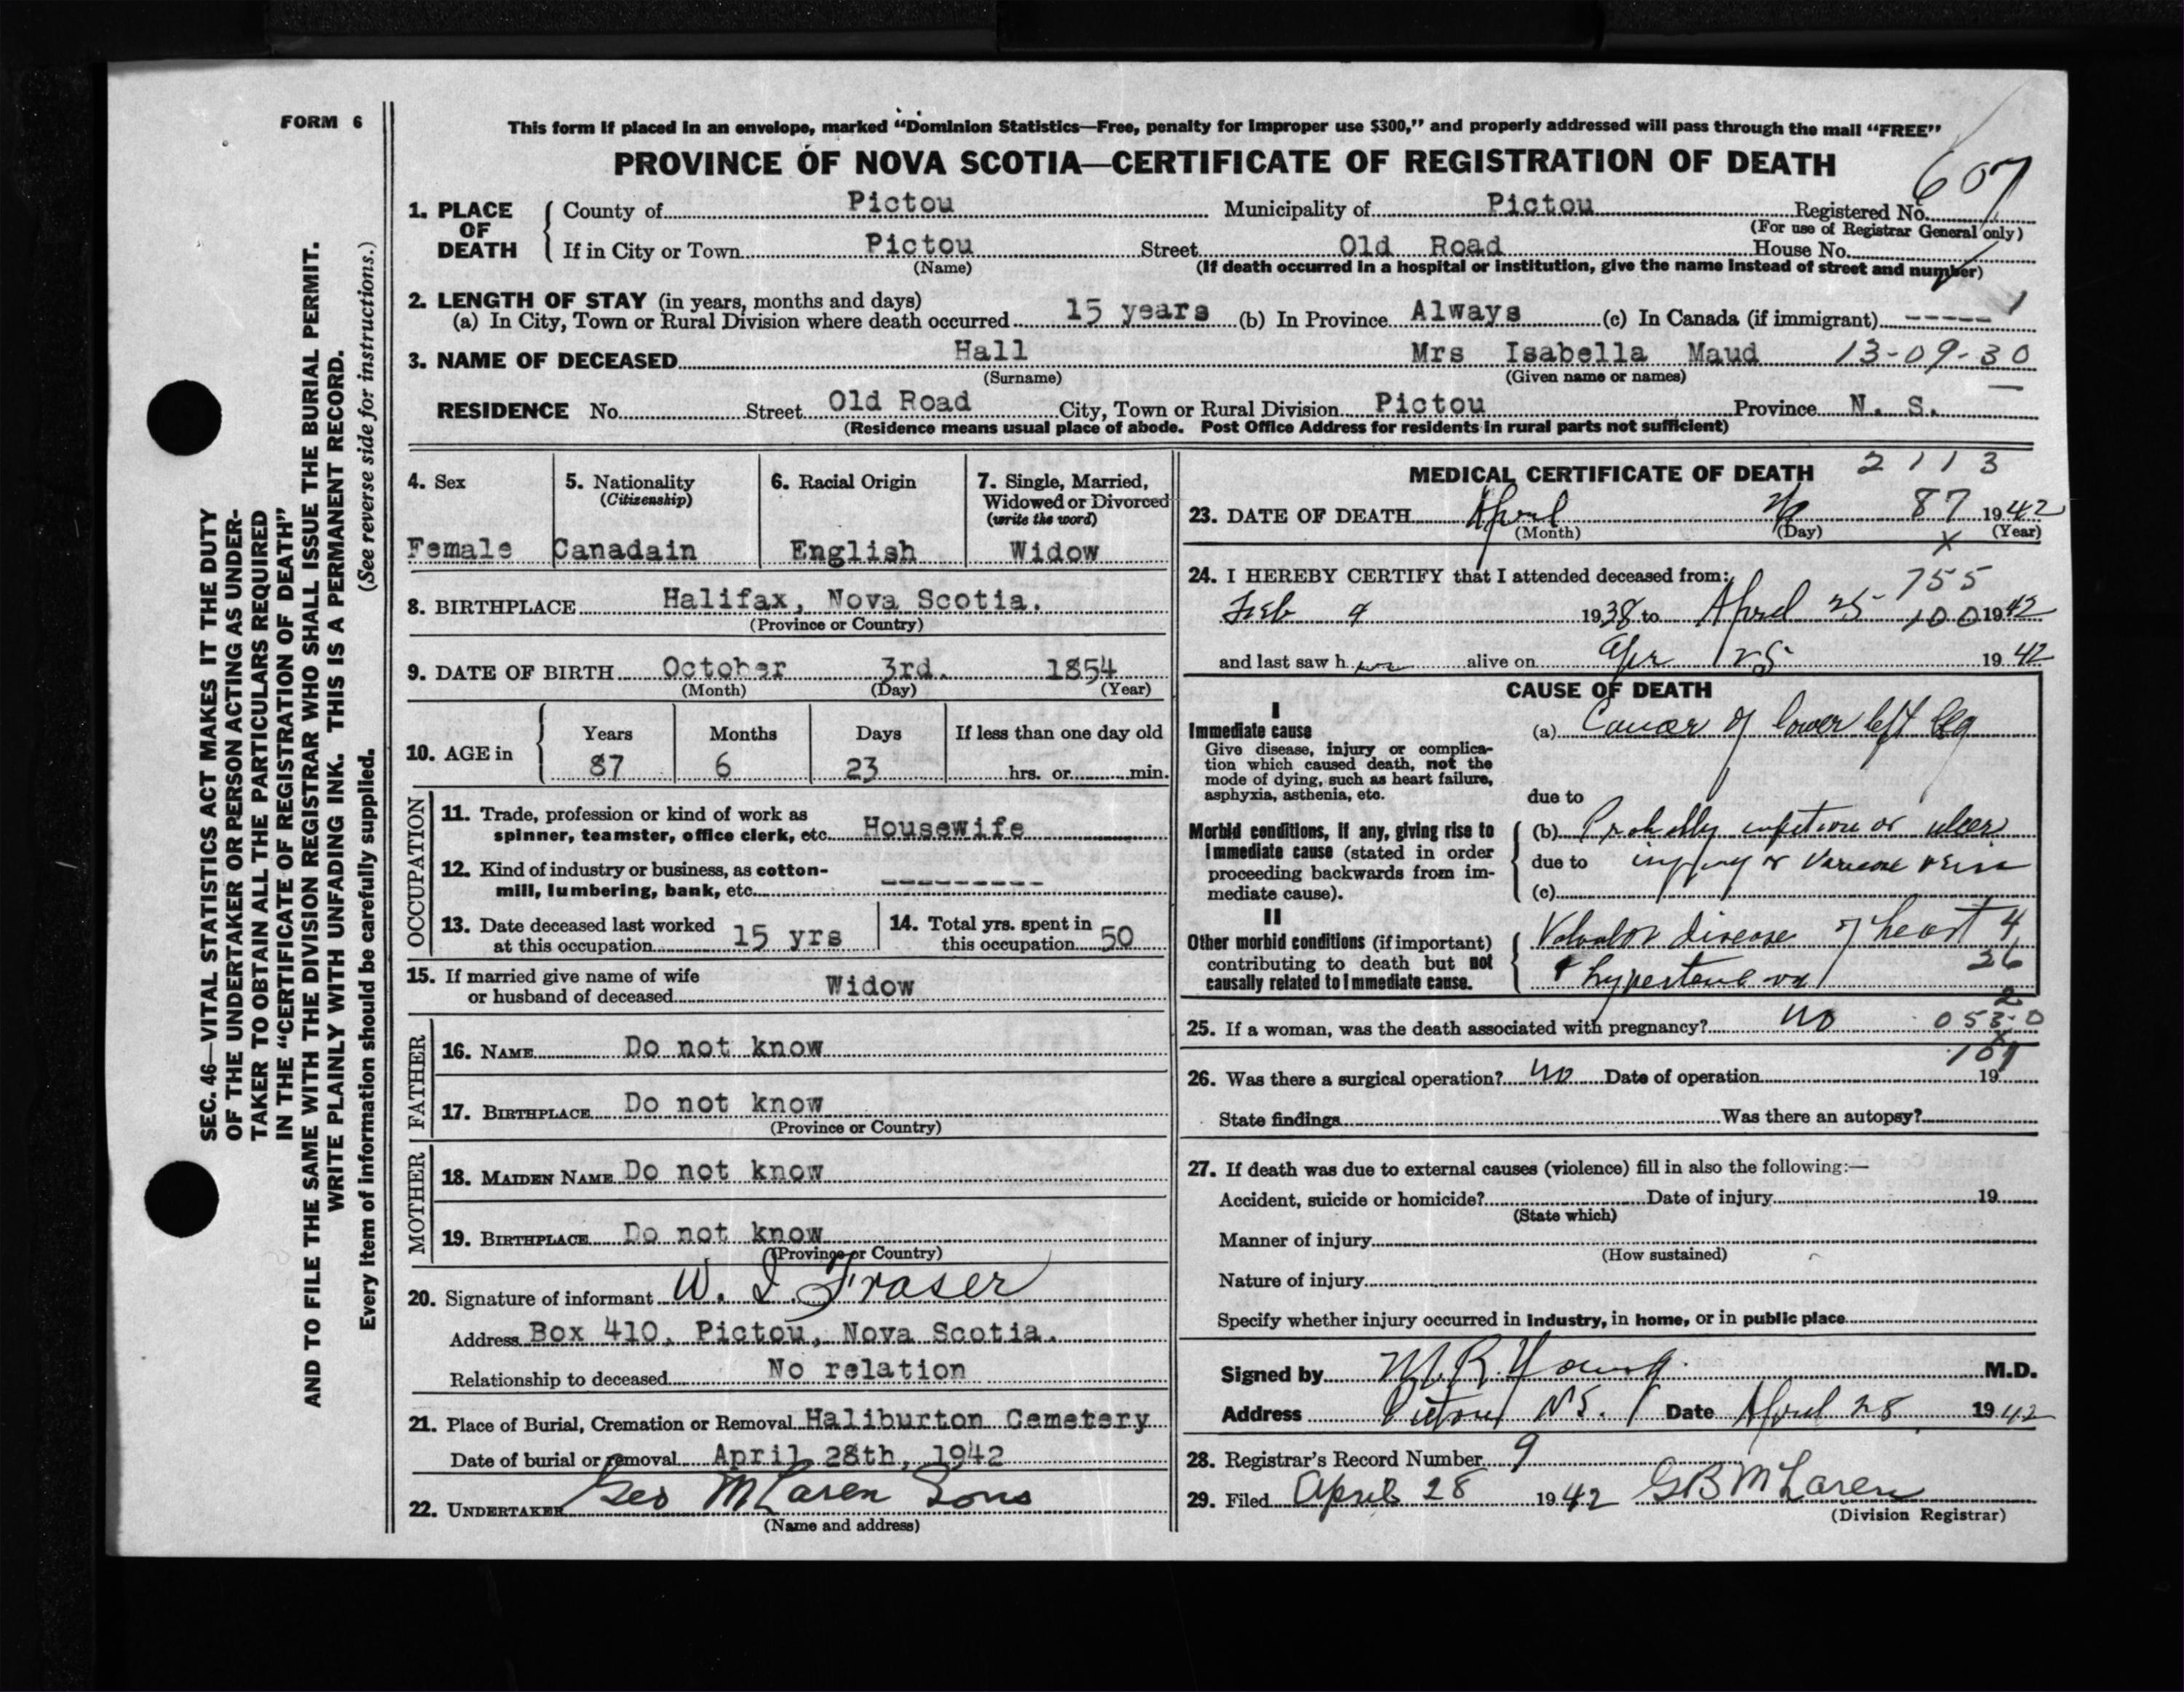 FORM 6
This form if placed in an envelope, marked “Dominion Statistics—Free, penalty for improper use $300,” and properly addressed will pass through the mail “FREE”
PROVINCE OF NOVA SCOTIA—CERTIFICATE OF REGISTRATION OF DEATH
607
1. PLACE OF DEATH
County of Pictou Municipality of Pictou Registered No.
(For use of Registrar General only)
If in City or Town Pictou Street Old Road House No.
(Name) (If death occurred in a hospital or institution, give the name instead of street and number)
2. LENGTH OF STAY (in years, months and days)
(a) In City, Town or Rural Division where death occurred 15 years (b) In Province Always (c) In Canada (if immigrant) -----
3. NAME OF DECEASED Hall Mrs Isabella Maud 13-09-30
(Surname) (Given name or names)
RESIDENCE No. Street Old Road City, Town or Rural Division Pictou Province N. S.
(Residence means usual place of abode. Post Office Address for residents in rural parts not sufficient)
4. Sex
Female
5. Nationality
(Citizenship)
Canadain
6. Racial Origin
English
7. Single, Married,
Widowed or Divorced
(write the word)
Widow
8. BIRTHPLACE Halifax, Nova Scotia.
(Province or Country)
9. DATE OF BIRTH October 3rd. 1854
(Month) (Day) (Year)
10. AGE in
Years Months Days If less than one day old
87 6 23 hrs. or min.
OCCUPATION
11. Trade, profession or kind of work as
spinner, teamster, office clerk, etc. Housewife
12. Kind of industry or business, as cotton-
mill, lumbering, bank, etc. ---------
13. Date deceased last worked
at this occupation 15 yrs
14. Total yrs. spent in
this occupation 50
15. If married give name of wife
or husband of deceased Widow
FATHER
16. NAME Do not know
17. BIRTHPLACE Do not know
(Province or Country)
MOTHER
18. MAIDEN NAME Do not know
19. BIRTHPLACE Do not know
(Province or Country)
20. Signature of informant W. I. Fraser
Address Box 410, Pictou, Nova Scotia.
Relationship to deceased No relation
21. Place of Burial, Cremation or Removal Haliburton Cemetery
Date of burial or removal April 28th, 1942
22. UNDERTAKER Geo McLaren Sons
(Name and address)
MEDICAL CERTIFICATE OF DEATH 2113
23. DATE OF DEATH April 87 1942
(Month) (Day) (Year)
24. I HEREBY CERTIFY that I attended deceased from: 755
Feb 9 1938 to April 25 100 1942
and last saw h er alive on Apr 25 1942
CAUSE OF DEATH
I
Immediate cause
Give disease, injury or complica-
tion which caused death, not the
mode of dying, such as heart failure,
asphyxia, asthenia, etc.
(a) Cancer of lower left leg
due to
Morbid conditions, if any, giving rise to
immediate cause (stated in order
proceeding backwards from im-
mediate cause).
(b) Probably infection or ulcer
due to injury or Varicose veins
(c)
II
Other morbid conditions (if important)
contributing to death but not
causally related to immediate cause.
Valvular disease of heart 4
& hypertension 26
25. If a woman, was the death associated with pregnancy? no
26. Was there a surgical operation? no Date of operation 19
State findings Was there an autopsy?
27. If death was due to external causes (violence) fill in also the following:—
Accident, suicide or homicide? Date of injury 19
(State which)
Manner of injury
(How sustained)
Nature of injury
Specify whether injury occurred in industry, in home, or in public place
Signed by M. R. Young M.D.
Address Pictou N.S. Date April 28 1942
28. Registrar's Record Number 9
29. Filed April 28 1942 G B McLaren
(Division Registrar)
SEC. 46—VITAL STATISTICS ACT MAKES IT THE DUTY
OF THE UNDERTAKER OR PERSON ACTING AS UNDER-
TAKER TO OBTAIN ALL THE PARTICULARS REQUIRED
IN THE “CERTIFICATE OF REGISTRATION OF DEATH”
AND TO FILE THE SAME WITH THE DIVISION REGISTRAR WHO SHALL ISSUE THE BURIAL PERMIT.
WRITE PLAINLY WITH UNFADING INK. THIS IS A PERMANENT RECORD.
Every item of information should be carefully supplied. (See reverse side for instructions.)